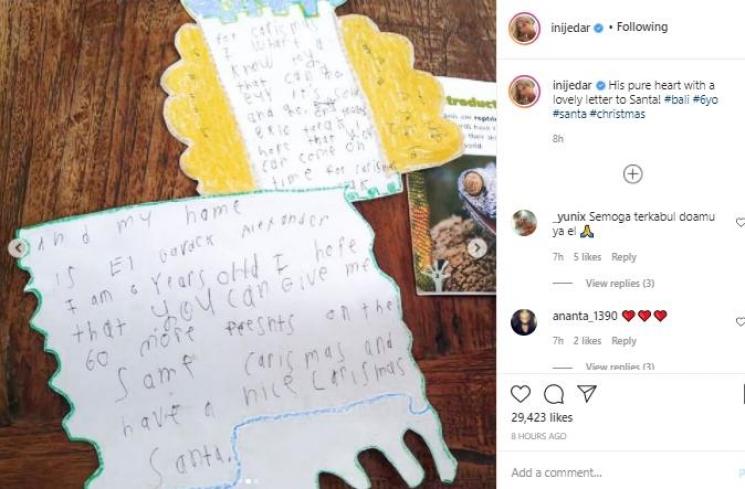 for carismas
I whant a
know toy
that can go
buy it's
and
hope that
can come on
time for carismas
troduct
and my name
is El barack Alexander
I am 6 Years ohld I hope
you can give me
that
60 more presnts on the
same carismas and
have a nice carismas
Santa.
inijedar • Following
inijedar His pure heart with a
lovely letter to Santa! #bali #6yo
#santa #christmas
8h
_yunix Semoga terkabul doamu
ya el 🙏
7h 5 likes Reply
View replies (3)
ananta_1390 ❤❤❤
7h 2 likes Reply
View replies (3)
29,423 likes
8 HOURS AGO
Add a comment...